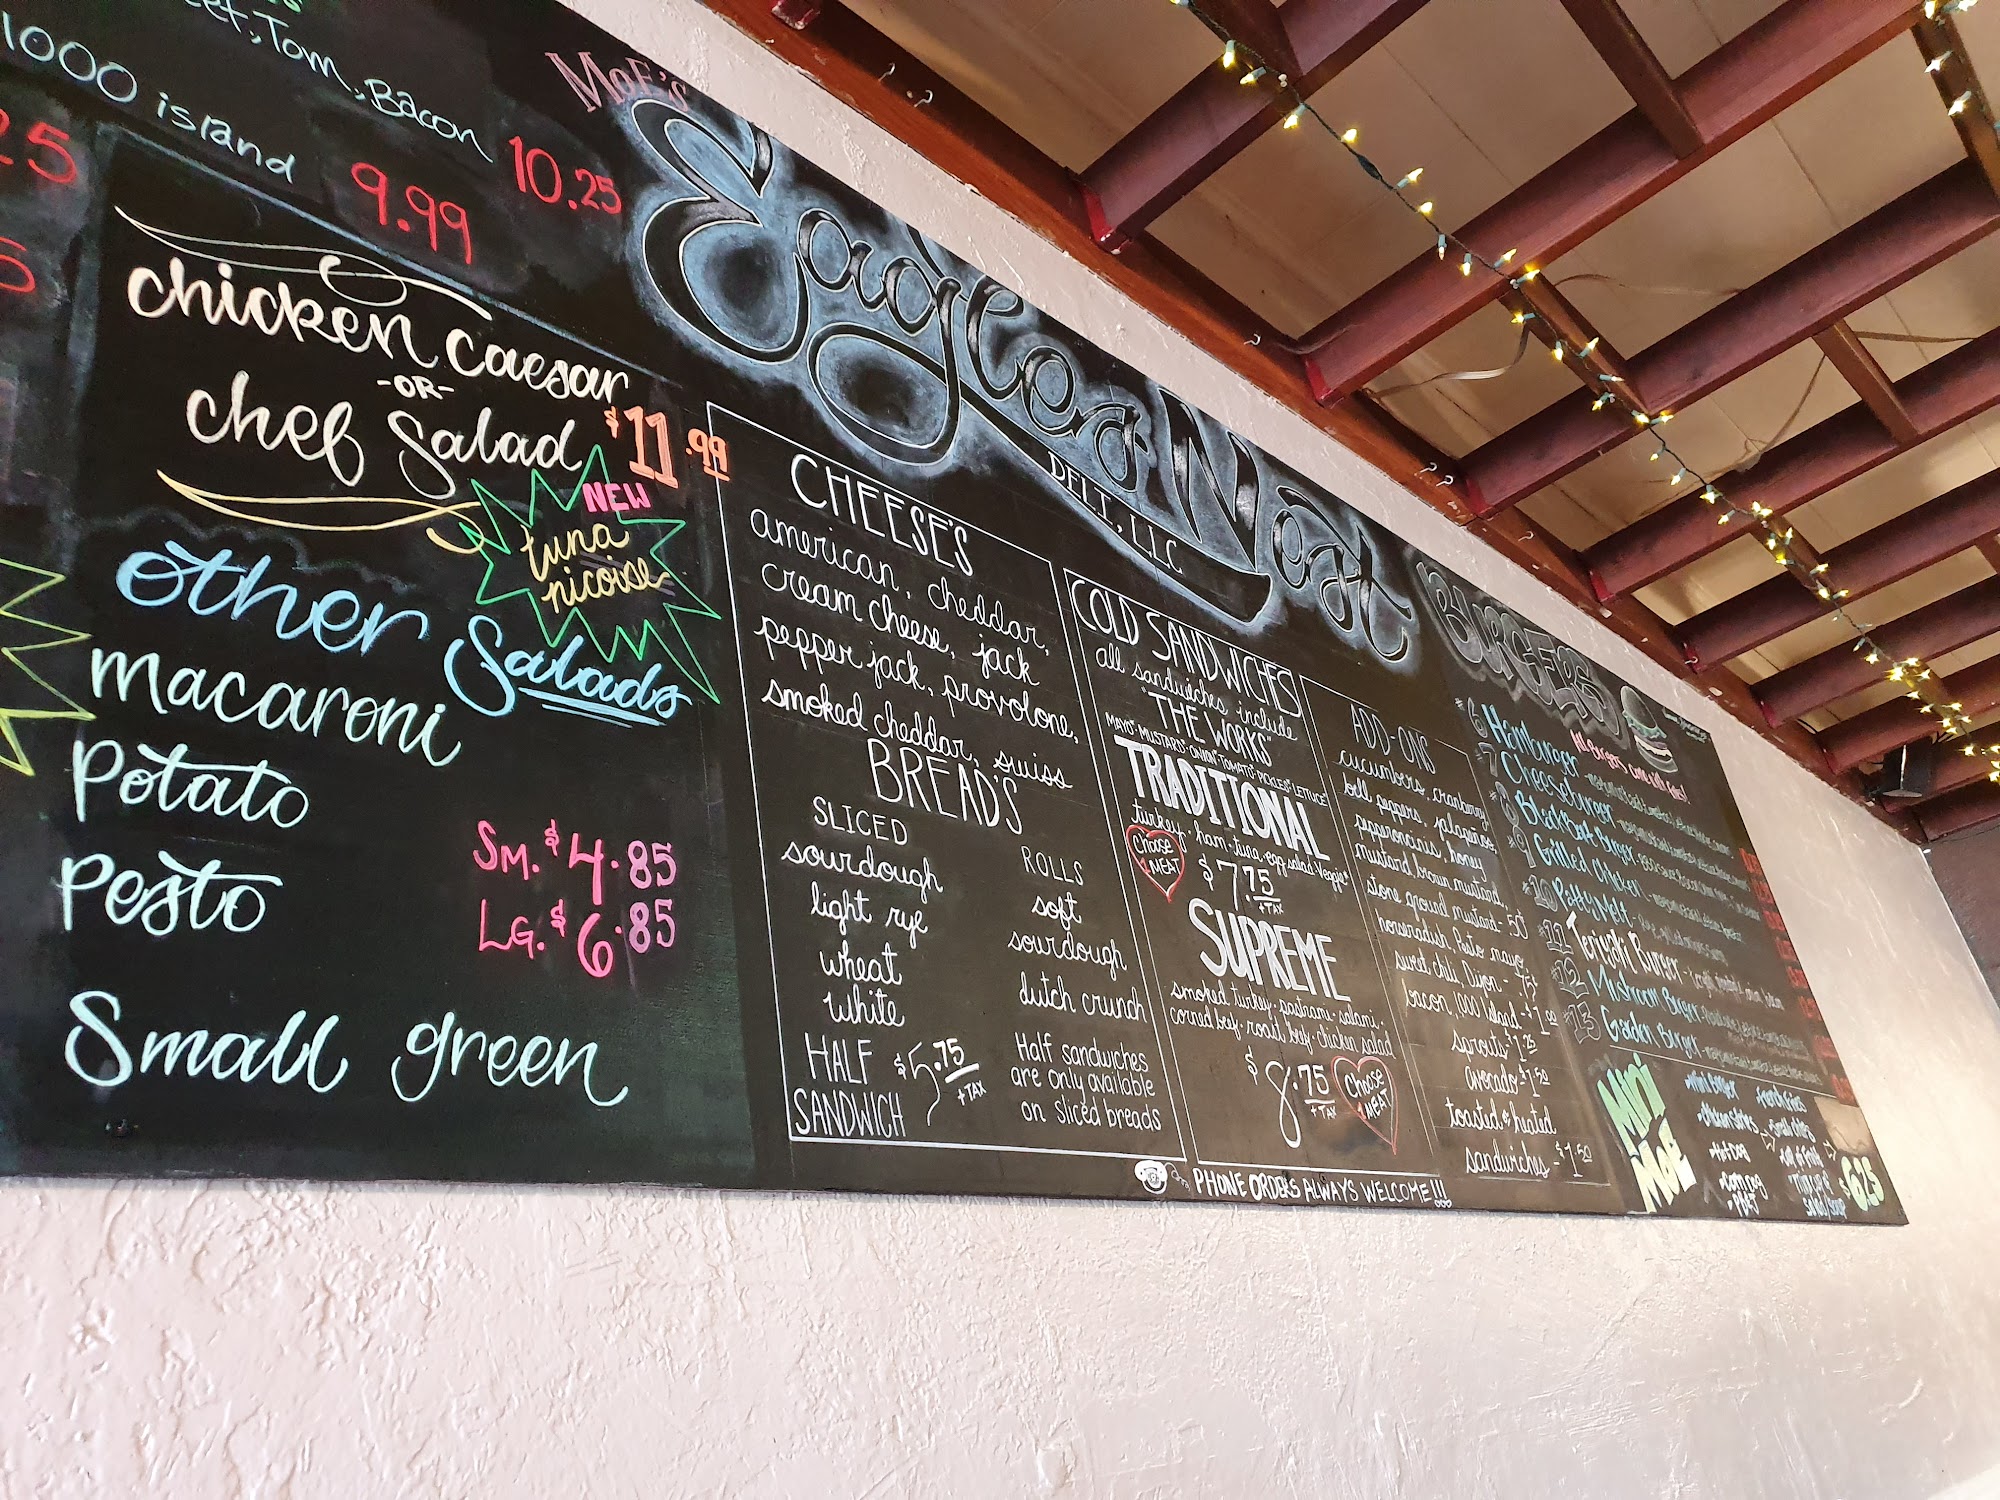 Tom, Bacon
1000 island
9.99
10.25
25
chicken caesar
-OR-
chef Salad $11.99
NEW
tuna
nicoise
other Salads
macaroni
Potato
Pesto
Sm. $4.85
LG. $6.85
Small green
MOE'S
Eagles Nest
DELI, LLC
CHEESE'S
american, cheddar,
cream cheese, jack
pepper jack, provolone,
smoked cheddar, swiss
BREAD'S
SLICED
sourdough
light rye
wheat
white
ROLLS
soft
sourdough
dutch crunch
HALF
SANDWICH
$5.75
+TAX
Half sandwiches
are only available
on sliced breads
COLD SANDWICHES
all sandwiches include
"THE WORKS"
MAYO MUSTARD ONION TOMATO PICKLES LETTUCE
TRADITIONAL
turkey ham tuna egg salad Veggie
Choose
1 MEAT
$7.75
+TAX
SUPREME
smoked turkey pastrami salami
corned beef roast beef chicken salad
$8.75
+TAX
Choose
1 MEAT
ADD-ONS
cucumbers, cranberry
bell peppers, jalapeños,
pepperoncinis, honey
mustard, brown mustard,
stone ground mustard - 50
horseradish, Pesto mayo,
sweet chili, Dijon - .75
bacon, 1,000 Island - $1.00
sprouts $1.25
avocado - $1.50
toasted & heated
sandwiches - $1.50
PHONE ORDERS ALWAYS WELCOME!!!
BURGERS
All Burgers Come with
#6 Hamburger
#7 Cheeseburger
#8 Black Bart Burger
#9 Grilled Chicken
#10 Patty Melt
#11 Teriyaki Burger
#12 Mushroom Burger
#13 Garden Burger
MINI
MOE
mini burger
chicken strips
hot dog
corn dog
PB&J
french fries
$6.25